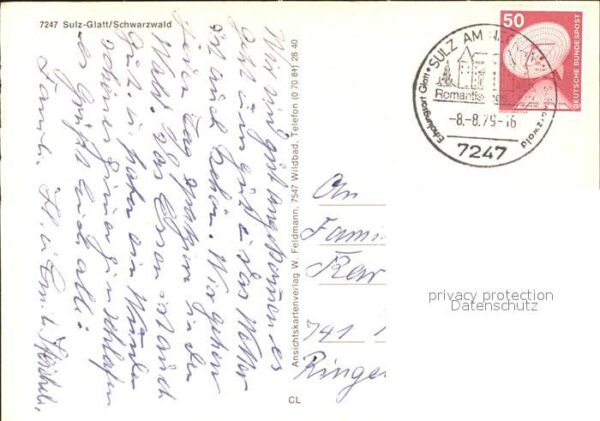 7247 Sulz-Glatt/Schwarzwald
Wir sind gut angekommen, es
geht uns gut u. das Wetter
ist auch schön. Wir gehen
jeden Tag spazieren in den
Wald. Das Essen ist auch
gut. u. haben ein
schönes zum schlafen
es grüßt Euch alle
Familie
Ansichtskartenverlag W. Feldmann, 7547 Wildbad, Telefon (0 70 81) 28 40
CL
SULZ AM
Romantisches
Erholungsort Glatt
-8.-8.79-16
7247
50
DEUTSCHE BUNDESPOST
An
Famil
741
Ringe
privacy protection
Datenschutz